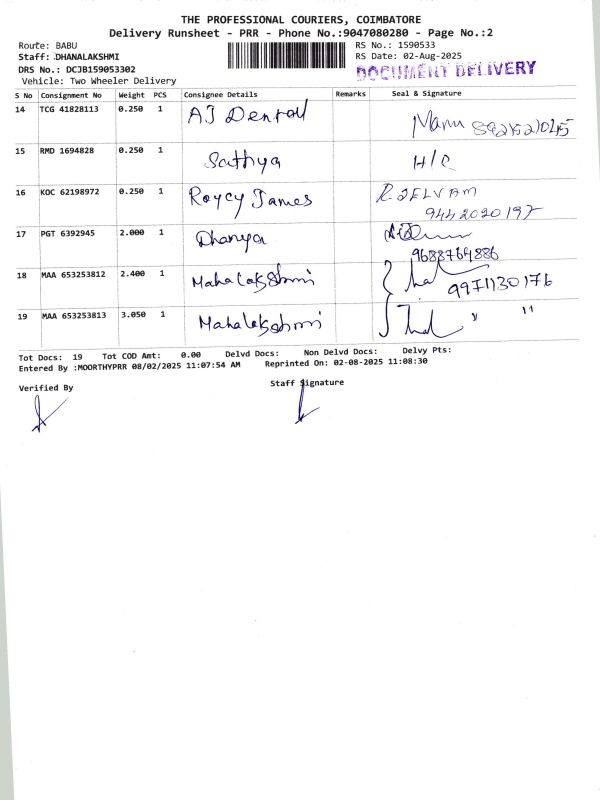 THE PROFESSIONAL COURIERS, COIMBATORE
Delivery Runsheet - PRR - Phone No.:9047080280 - Page No.:2
Route: BABU
Staff: DHANALAKSHMI
DRS No.: DCJB159053302
Vehicle: Two Wheeler Delivery
RS No.: 1590533
RS Date: 02-Aug-2025
DOCUMENT DELIVERY
S No Consignment No Weight PCS Consignee Details Remarks Seal & Signature
14 TCG 41828113 0.250 1 AJ Dental Manu
15 RMD 1694828 0.250 1 Sathya H/C
16 KOC 62198972 0.250 1 Roycy James R. SELVAM
9442020197
17 PGT 6392945 2.000 1 Dhanya
9688764886
18 MAA 653253812 2.400 1 Mahalakshmi 9971130176
19 MAA 653253813 3.050 1 Mahalakshmi " "
Tot Docs: 19 Tot COD Amt: 0.00 Delvd Docs: Non Delvd Docs: Delvy Pts:
Entered By :MOORTHYPRR 08/02/2025 11:07:54 AM Reprinted On: 02-08-2025 11:08:30
Verified By Staff Signature